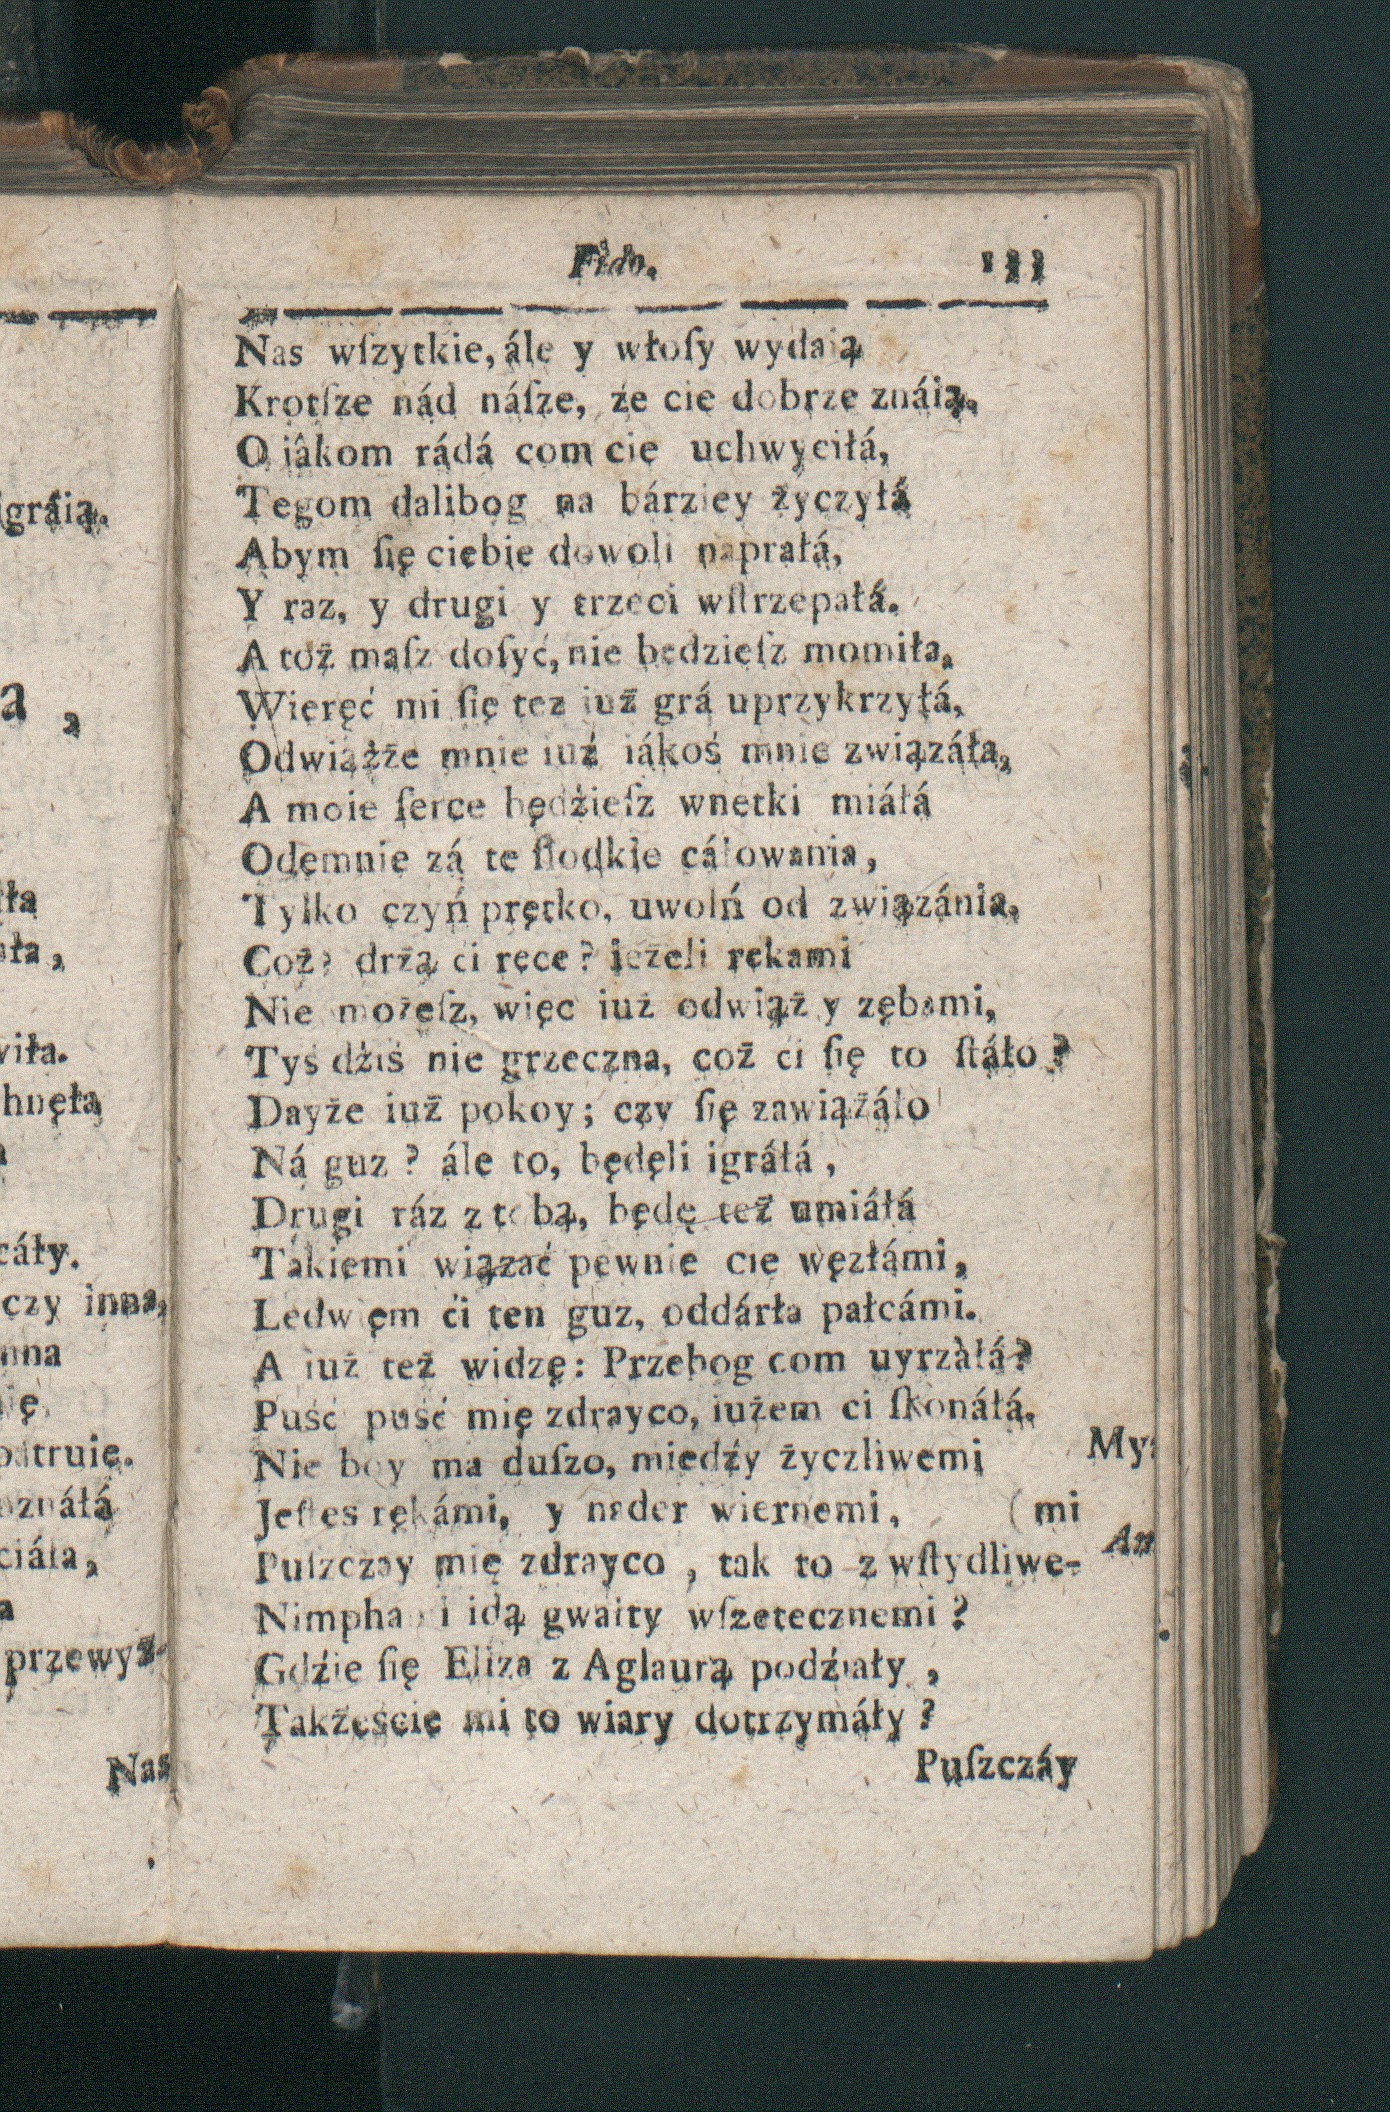 Fido. 133
Nas wſzytkie, ále y włoſy wydaią
Krotſze nád náſze, że cie dobrze znáią.
O iákom rádá com cie uchwyciłá,
Tegom dalibog na bárziey życzyłá
Abym ſię ciebie dowoli naprałá,
Y raz, y drugi y trzeci wſtrzepałá.
A toż maſz doſyć, nie będzieſz momiła,
Wieręć mi ſię tez iuż grá uprzykrzyłá,
Odwiążże mnie iuż iákoś mnie związáła,
A moie ſerce będźieſz wnetki miáłá
Odemnie zá te ſłodkie cáłowania,
Tylko czyń prętko, uwolń od związánia.
Coż? drżą ci ręce? ieżeli rękami
Nie możeſz, więc iuż odwiąż y zębami,
Tyś dźiś nie grzeczna, coż ci ſię to ſtáło?
Dayże iuż pokoy; czy ſię zawiążáło
Ná guz? ále to, będęli igráłá,
Drugi ráz z tobą, będę też umiáłá
Takiemi wiązać pewnie cie węzłámi,
Ledwięm ći ten guz, oddárła pałcámi.
A iuż też widzę: Przebog com uyrzàłá?
Puść puść mię zdrayco, iużem ci ſkonáłá.
Nie boy ma duſzo, miedźy życzliwemi
Jeſtes rękámi, y nader wiernemi, (mi
Puſzczay mię zdrayco, tak to z wſtydliwe-
Nimphami idą gwałty wſzetecznemi?
Gdźie ſię Eliza z Aglaurą podźiały,
Takżeście mi to wiary dotrzymáły?
Puſzczáy
igráią.
a,
iła.
hnęłą
cáły.
czy inna,
ciáła,
przewyż-
Nas
My
An